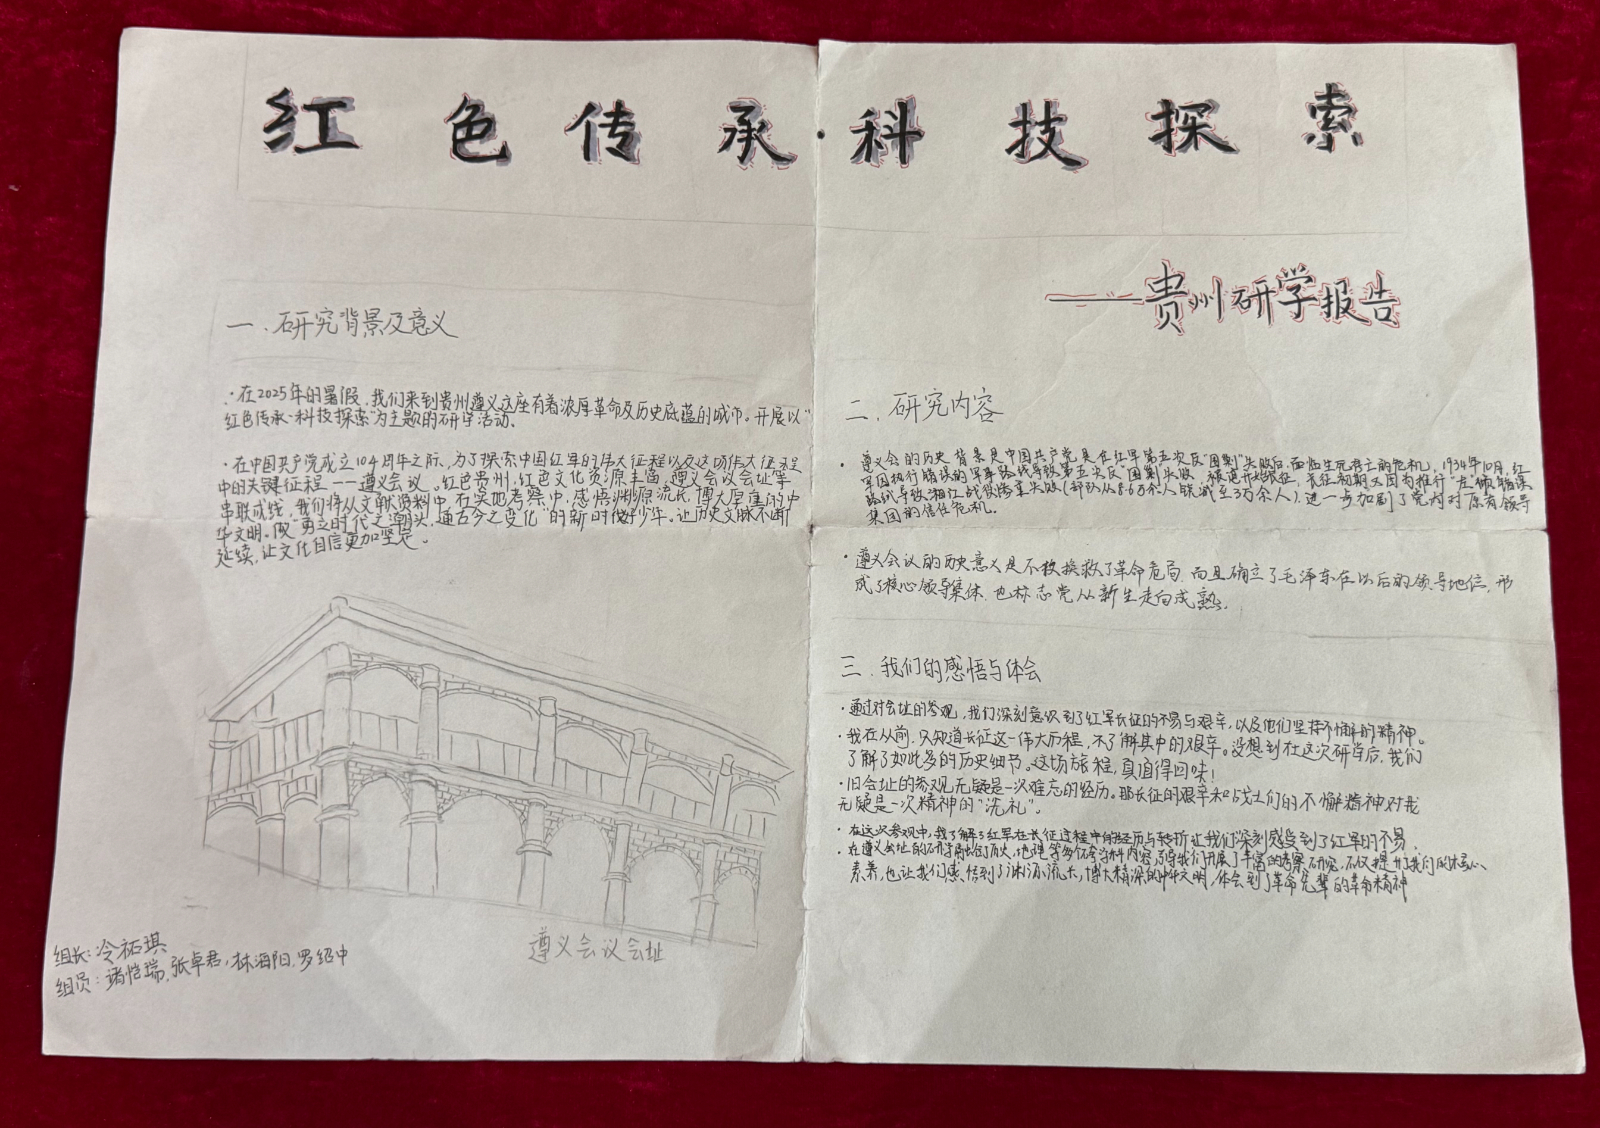 红色传承·科技探索
——贵州研学报告
一.研究背景及意义
·在2025年的暑假,我们来到贵州遵义这座有着浓厚革命及历史底蕴的城市。开展以“
红色传承·科技探索”为主题的研学活动、
·在中国共产党成立104周年之际,为了探索中国红军的伟大征程以及这场伟大征程
中的关键征程——遵义会议。红色贵州,红色文化资源丰富,遵义会议会址等
串联成线,我们将从文献资料中,在实地考察中,感悟渊源流长,博大厚重的中
华文明。做“勇立时代之潮头,通古今之变化”的新时代好少年。让历史文脉不断
延续,让文化自信更加坚定。
遵义会议会址
组长:冷祐琪
组员:诸恺瑞,张卓君,林海阳,罗绍中
二.研究内容
·遵义会的历史背景是中国共产党是在红军第五次反“围剿”失败后,面临生死存亡的危机,1934年10月,红
军因执行错误的军事路线导致第五次反“围剿”失败,被迫开始长征,长征初期又因为推行“左”倾错误
路线导致湘江战役惨重失败(部队从8.6万余人锐减至3万余人),进一步加剧了党内对原有领导
集团的信任危机。
·遵义会议的历史意义是不枚换救了革命危局,而且确立了毛泽东在以后的领导地位,形
成了核心领导集体,也标志党从新生走向成熟。
三.我们的感悟与体会
·通过对会址的参观,我们深刻意识到了红军长征的不易与艰辛,以及他们坚持不懈的精神。
·我在从前,只知道长征这一伟大历程,不了解其中的艰辛。没想到在这次研学后,我们
了解了如此多的历史细节。这场旅程,真值得回味!
·旧会址的参观无疑是一次难忘的经历。那长征的艰辛和战士们的不懈精神对我
无疑是一次精神的“洗礼”。
·在这次参观中,我了解了红军在长征过程中的经历与转折让我们深刻感受到了红军的不易.
·在遵义会址的研学融合了历史,地理等多学科内容,引导我们开展了丰富的考察研究,不仅提升了我们的核心
素养,也让我们感悟到了渊源流长,博大精深的中华文明,体会到了革命先辈的革命精神